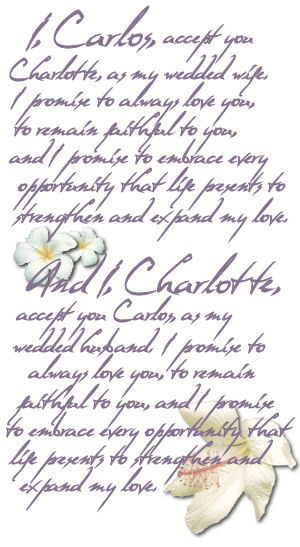 I, Carlos, accept you
Charlotte, as my wedded wife.
I promise to always love you,
to remain faithful to you,
and I promise to embrace every
opportunity that life presents to
strengthen and expand my love.
And I, Charlotte,
accept you Carlos, as my
wedded husband. I promise to
always love you, to remain
faithful to you, and I promise
to embrace every opportunity that
life presents to strengthen and
expand my love.